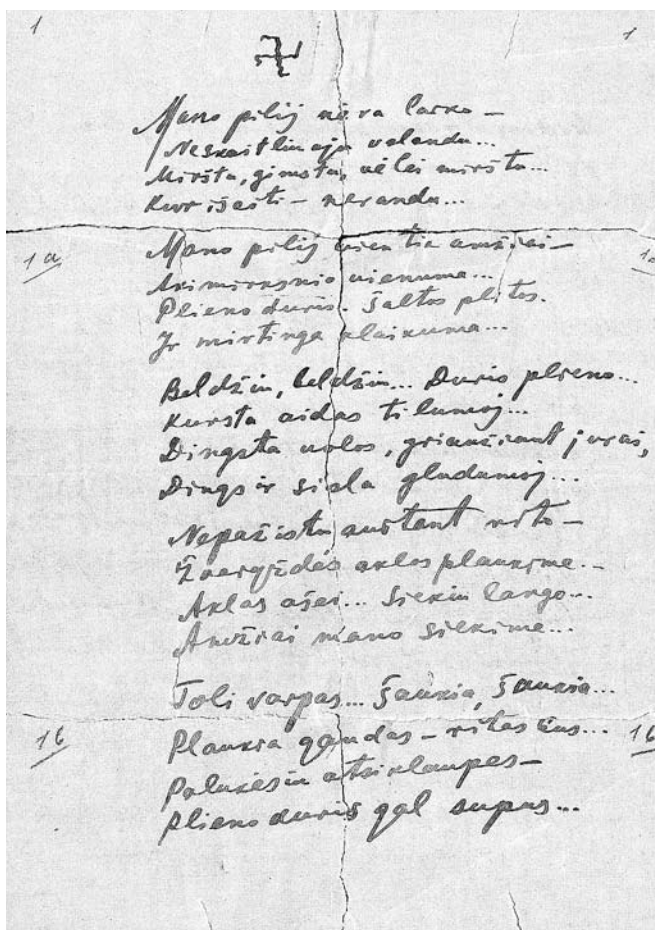 1 1
Mano pilij nėra laiko –
Neskaitliuoja valandu...
Miršta, gimsta, vėlei miršta...
Kur išeiti – nerandu...
1a 1a
Mano pilij vien tik amžiai –
Akimirksnio vienuma...
Plieno duris. Šaltos plitos.
Ir mirtinga klaikuma...
Beldžiu, beldžiu... Duris plieno...
Kursta aidas tilumoj...
Dingsta uolos, griaužiant jurai,
Dings ir siela gludumoj...
Nepažįstu auštant rito –
Žvaigždės aklos plaukime...
Aklas ašai... Siekiu lango...
Amžiai mano siekime...
Toli varpas... Šaukia, šaukia...
16 16
Plaukia gandas – ritas bus...
Palukėsiu atsiklaupęs –
Plieno duris gal supus...